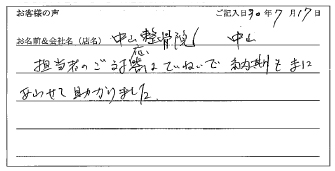 お客様の声　ご記入日30年7月17日
お名前&会社名(店名)　中山整骨院　中山
担当者のご対応はていねいで 納期もまに
あわせて助かりました